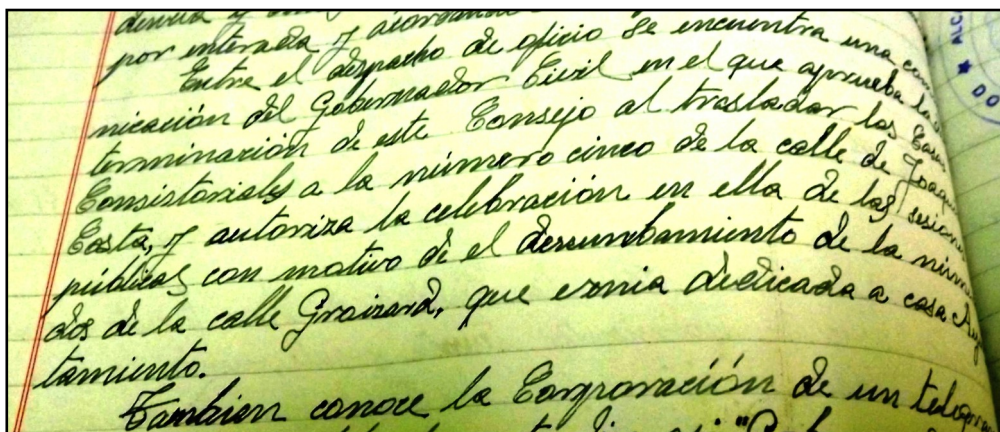 por enterada y acordando
Entre el despacho de oficio se encuentra una comu
nicación del Gobernador Civil en el que aprueba la de
terminación de este Consejo al trasladar las Casas
Consistoriales a la número cinco de la calle de Joaquin
Costa, y autoriza la celebración en ella de las sesiones
públicas con motivo de el derrumbamiento de la núme
dos de la calle Groizard, que venia dedicada a casa Ayun
tamiento.
Tambien conoce la Corporación de un telegra
ALC
DO